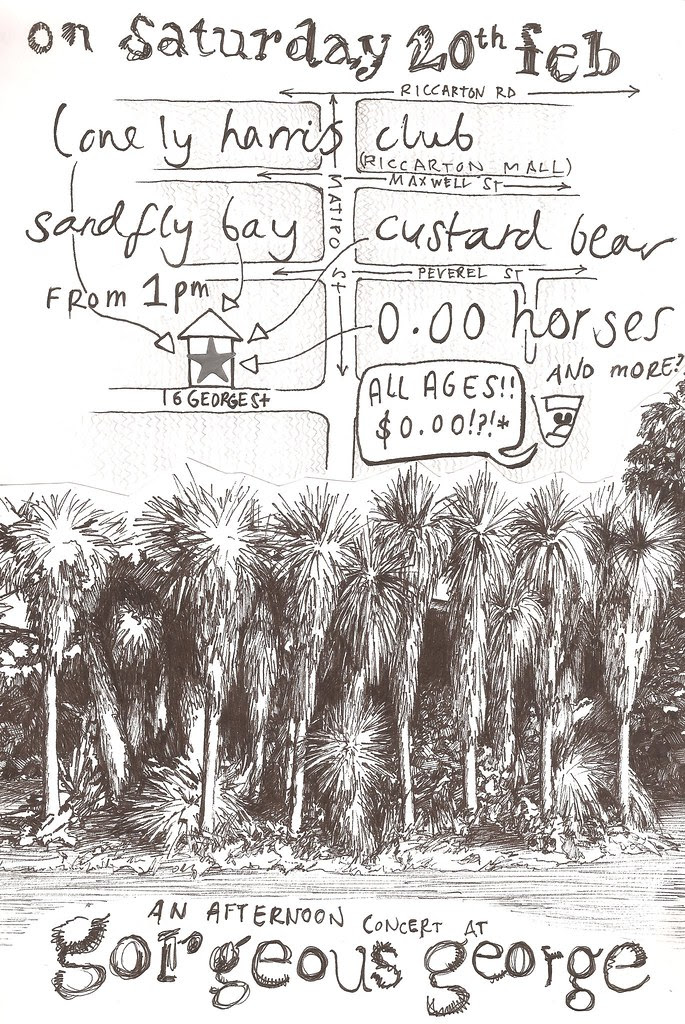 on saturday 20th feb
RICCARTON RD
lonely harris club
(RICCARTON MALL)
MAXWELL ST
MATIPO ST
sandfly bay custard bear
PEVEREL ST
FROM 1pm
0.00 horses
AND MORE?
16 GEORGE St
ALL AGES!!
$0.00!?!*
AN AFTERNOON CONCERT AT
gorgeous george